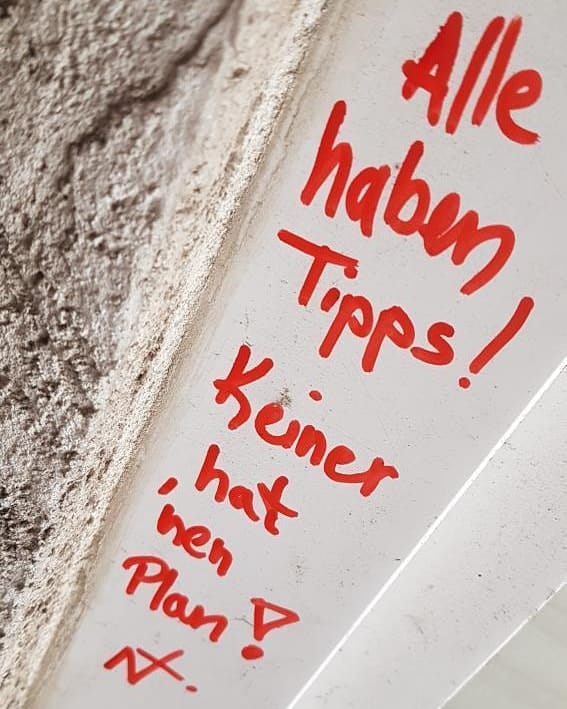 Alle
haben
Tipps!
Keiner
hat
'nen
Plan!